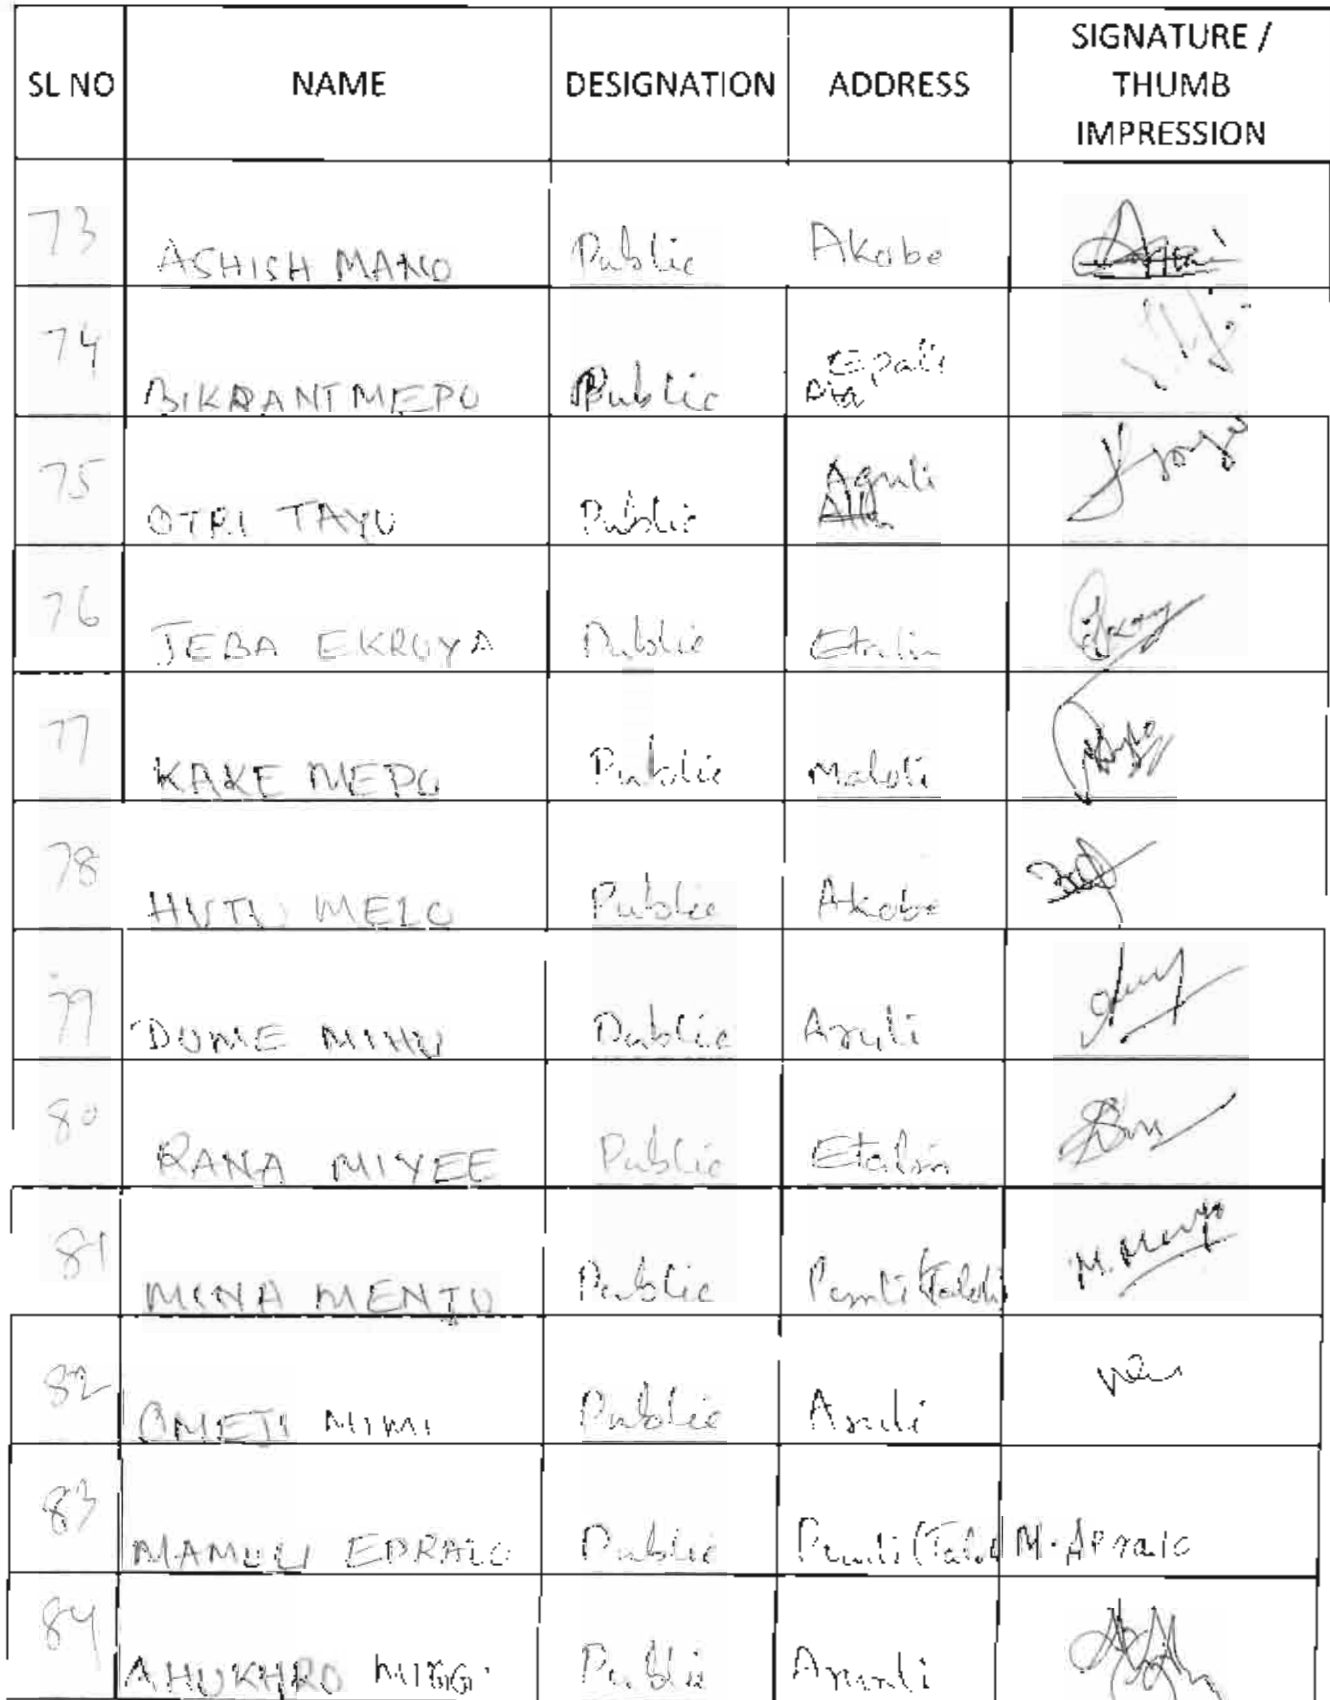 SL NO NAME DESIGNATION ADDRESS SIGNATURE / THUMB IMPRESSION
73 ASHISH MANO Public Akobe
74 BIKRANT MEPO Public Epali
75 OTRI TAYU Public Aguli
76 JEBA EKRUYA Public Etalin
77 KAKE MEPO Public Maloli
78 HUTU MELO Public Akobe
79 DUME MIHU Public Aruli
80 RANA MIYEE Public Etalin
81 MINA MENJO Public M. Menjo
82 OMETI MIMI Public Aruli
83 MAMULI EPRALO Public M. Apralo
84 AHUKHRO Public